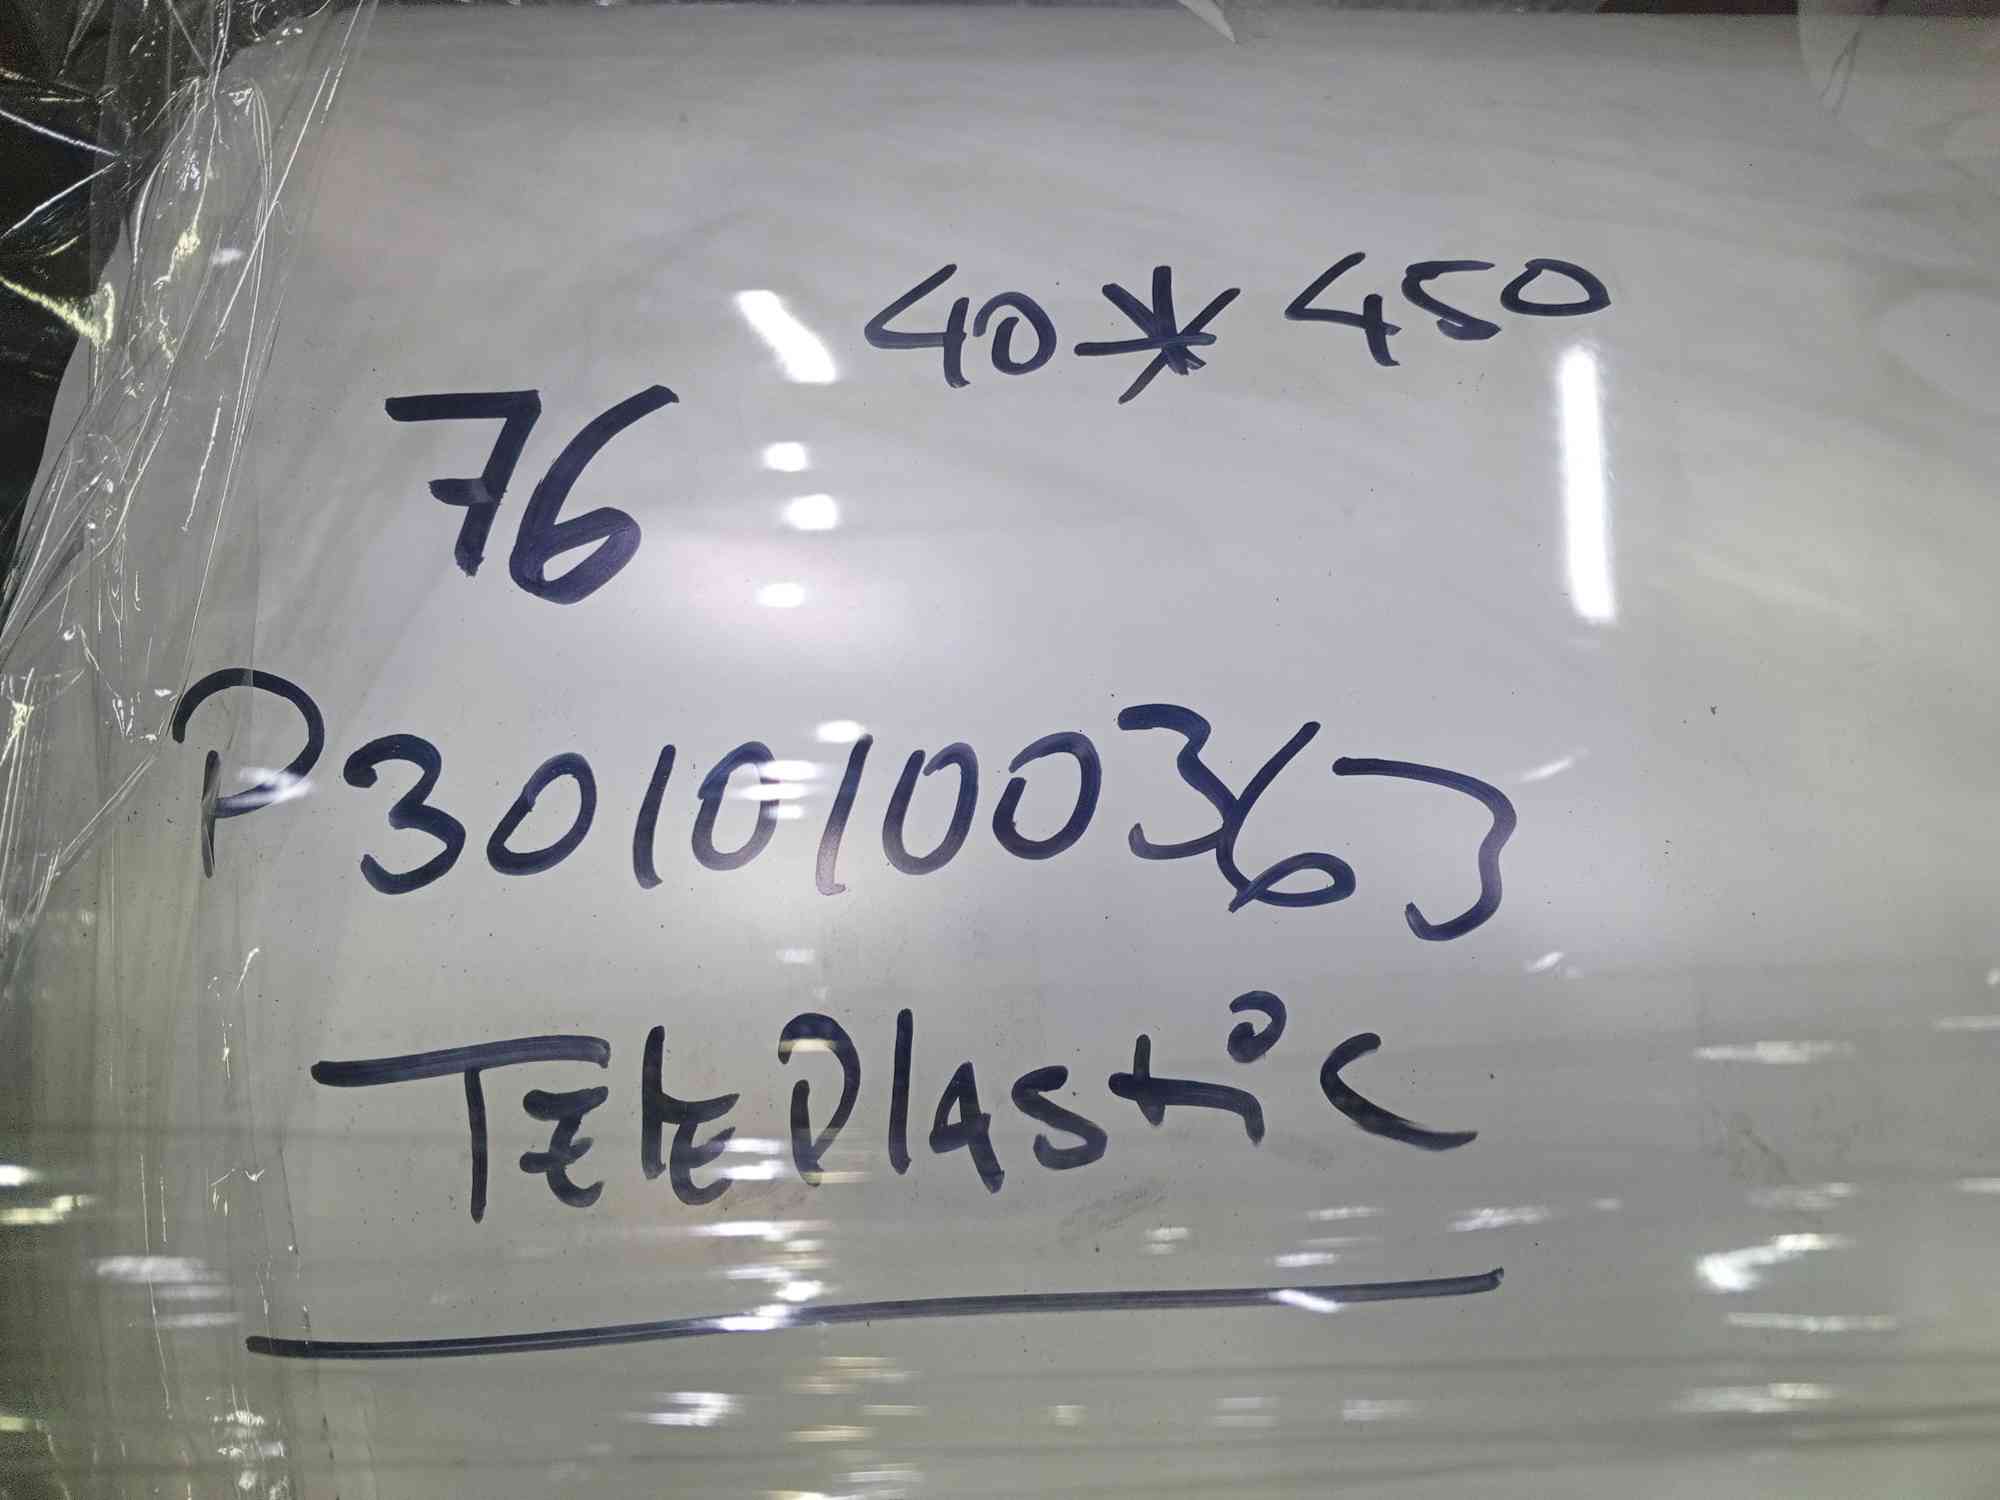 40*450
76
P3010100363
TELEPlastic